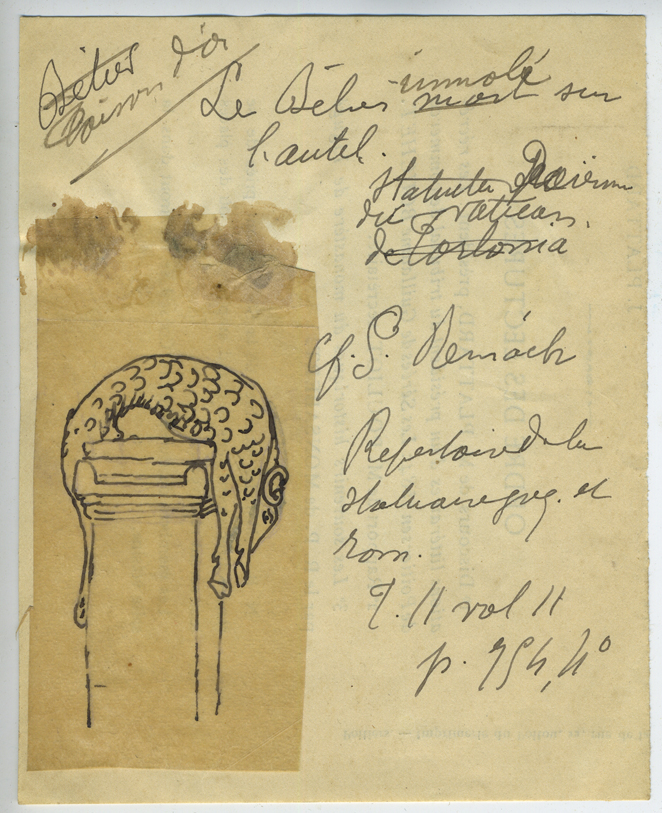 Bélier d'or
Toison
immolé
Le Bélier mort sur
l'autel.
Statuette
du Vatican.
de Torlonia
cf. S. Reinach
Repertoire de la
statuaire grq. et
rom.
T. II vol II
p. 754, 4°